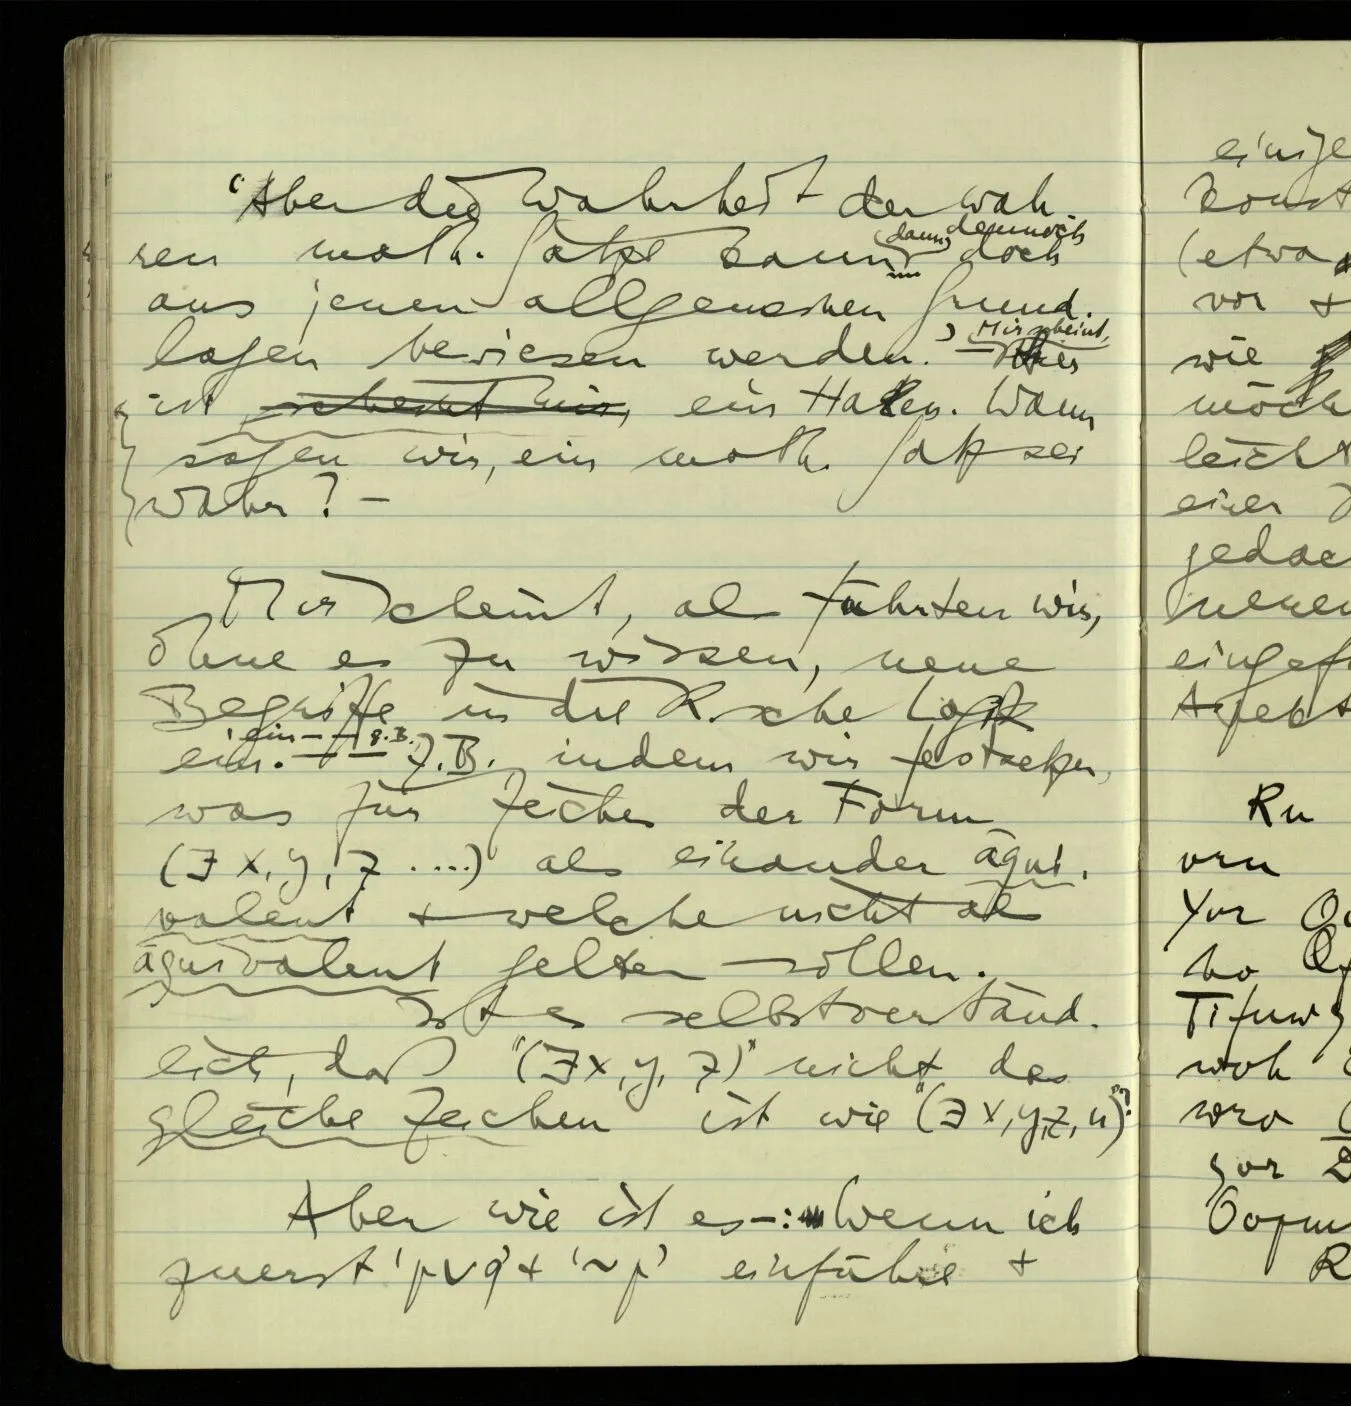 ‘Aber die Wahrheit der wah-
ren math. Sätze kann dann dennoch doch
aus jenen allgemeinen Grund-
lagen bewiesen werden.’ – Mir scheint, Hier
ist scheint mir, ein Haken. Wann
sagen wir, ein math. Satz sei
wahr? –
Mir scheint, als führten wir,
ohne es zu wissen, neue
Begriffe in die R.sche Logik
‘ein – – z.B.
ein. – – Z.B., indem wir festsetzen,
was für Zeichen der Form
(∃x, y, z ....) als einander äqui-
valent + welche nicht als
äquivalent gelten sollen.
Ist es selbstverständ-
lich, daß “(∃x, y, z)” nicht das
gleiche Zeichen ist wie “(∃x, y, z, u)”?
Aber wie ist es –: Wenn ich
zuerst ‘p∨q’ + ‘~p’ einführe +
einige
konst
(etwa
vor +
wie
möch
leicht
einer
jedoc
neuen
eingef
Aspekt
Rn
vrn
Yvr
ho
Tifuw
woh
wro
Oopm
R